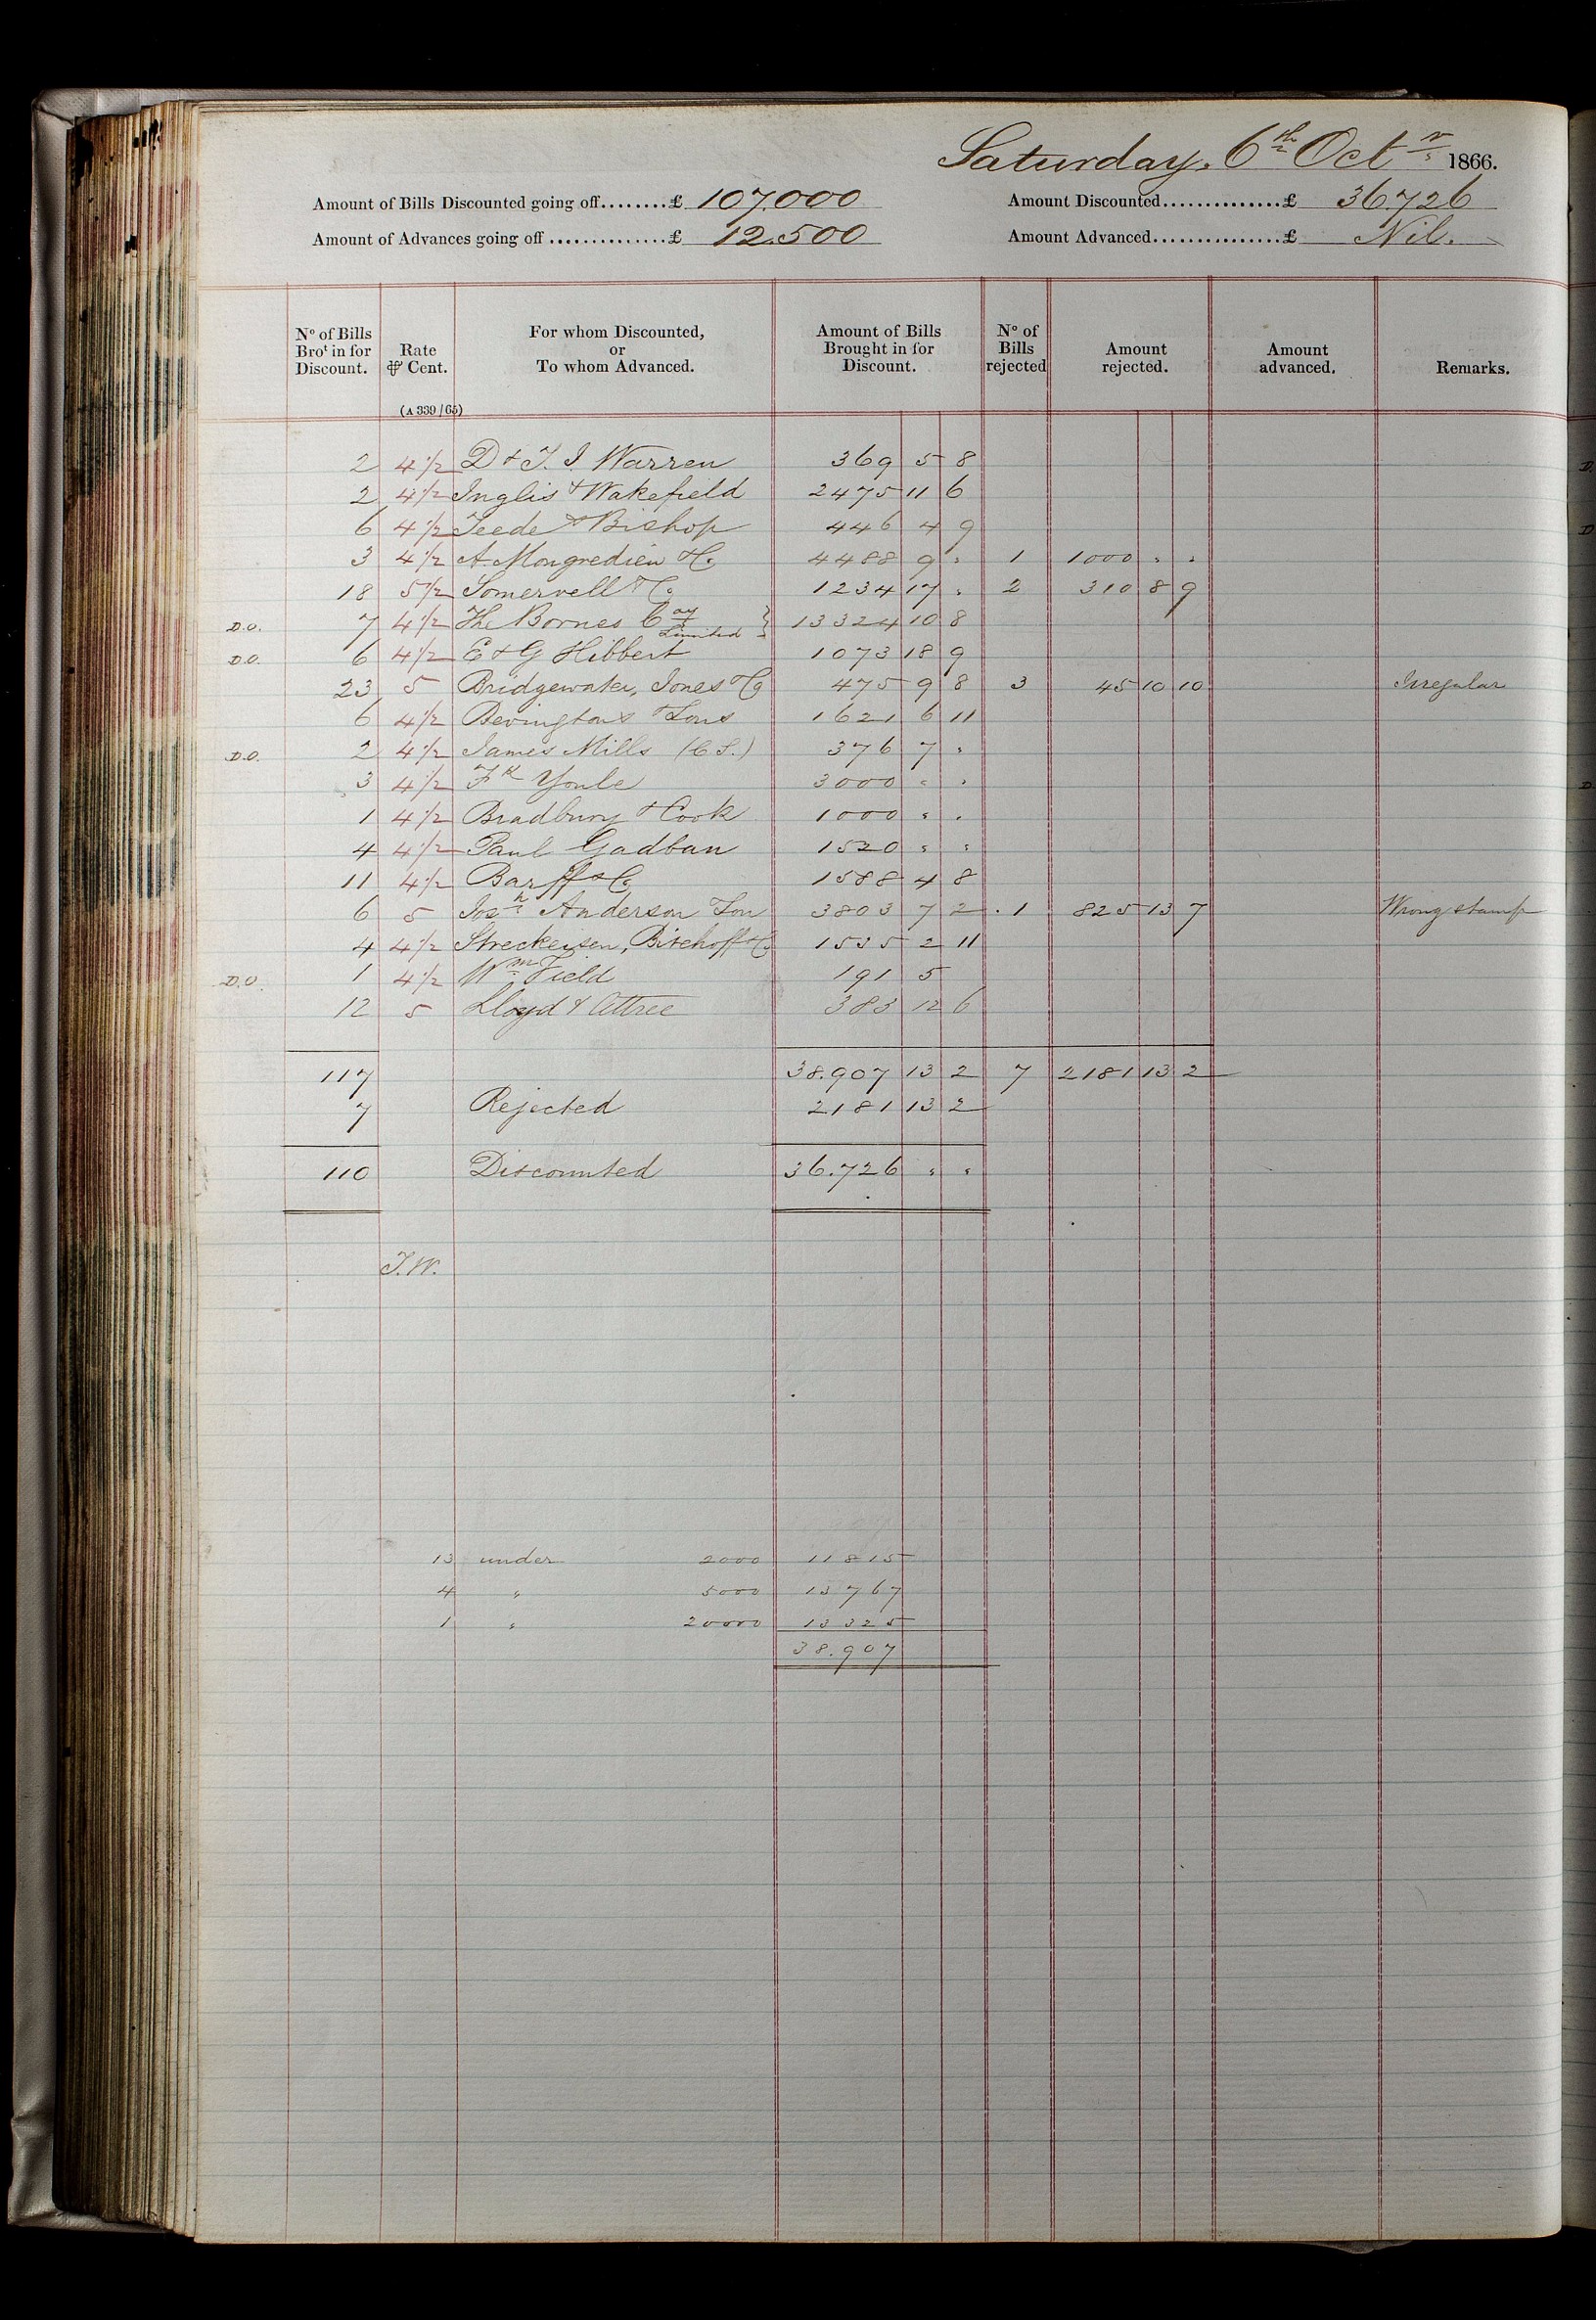 Saturday, 6th Octr 1866.
Amount of Bills Discounted going off........£ 107.000 Amount Discounted...............£ 36.726
Amount of Advances going off...............£ 12.500 Amount Advanced................£ Nil.
No of Bills Brot in for Discount. Rate ⅌ Cent. For whom Discounted, or To whom Advanced. Amount of Bills Brought in for Discount. No of Bills rejected Amount rejected. Amount advanced. Remarks.
(A 339/65)
2 4½ D & T. I Warren 369 5 8
2 4½ Inglis & Wakefield 2475 11 6
6 4½ Teede & Bishop 446 4 9
3 4½ A Mongredien & Co 4488 9 " 1 1000 " "
18 5½ Somervell & Co 1234 17 " 2 310 8 9
D.O. 7 4½ The Borneo Coay Limited } 13324 10 8
D.O. 6 4½ E & G Hibbert 1073 18 9
23 5 Bridgewater, Jones & Co 475 9 8 3 45 10 10 Irregular
6 4½ Bevingtons & Sons 1621 6 11
D.O. 2 4½ James Mills (C S.) 376 7 "
3 4½ Fk Youle 3000 " "
1 4½ Bradbury & Cook 1000 " "
4 4½ Paul Gadban 1520 " "
11 4½ Barff & Co 1588 4 8
6 5 Josh Anderson Son 3803 7 2 1 825 13 7 Wrong stamp
4 4½ Streckeisen, Bischoff & Co 1535 2 11
D.O. 1 4½ Wm Field 191 5
12 5 Lloyd & Attree 383 12 6
117 38.907 13 2 7 2181 13 2
7 Rejected 2181 13 2
110 Discounted 36.726 " "
T.W.
13 under 2000 11815
4 " 5000 13767
1 " 20000 13325
38.907